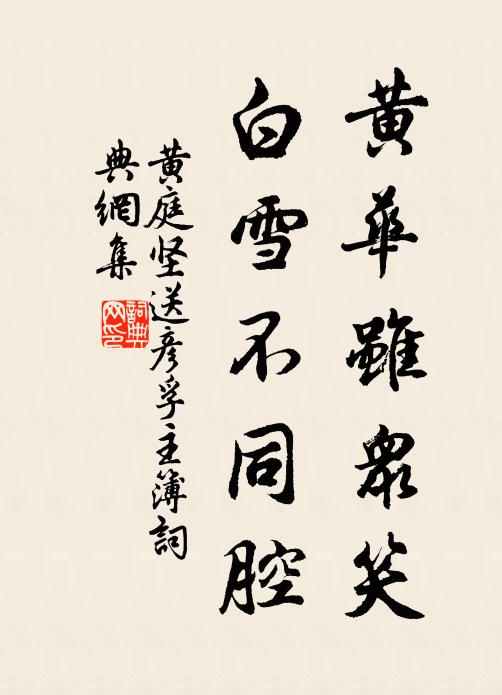 黄華雖衆笑
白雪不同腔
黄庭坚送彦孚主簿詞
典網集
詞典
网印